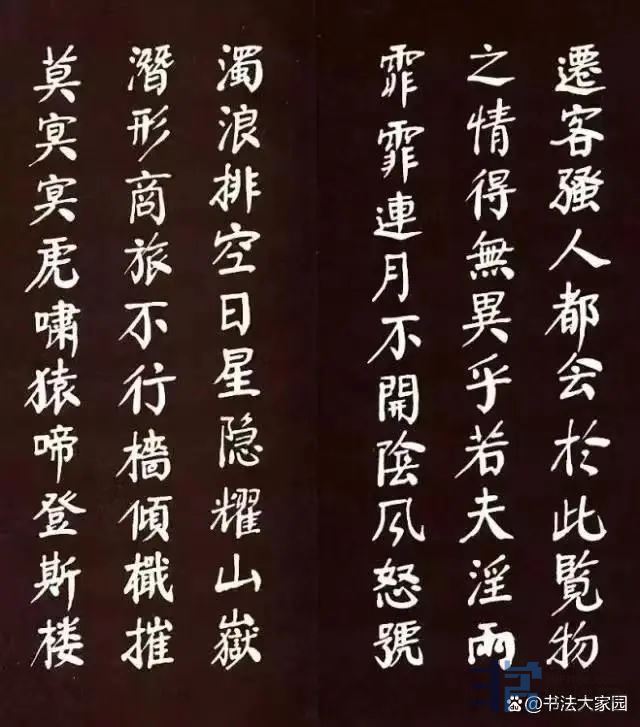 遷客騷人都会於此覧物
之情得無異乎若夫淫雨
霏霏連月不開陰风怒號
濁浪排空日星隐耀山嶽
潛形商旅不行檣傾檝摧
莫冥冥虎嘯猿啼登斯楼
@书法大家园